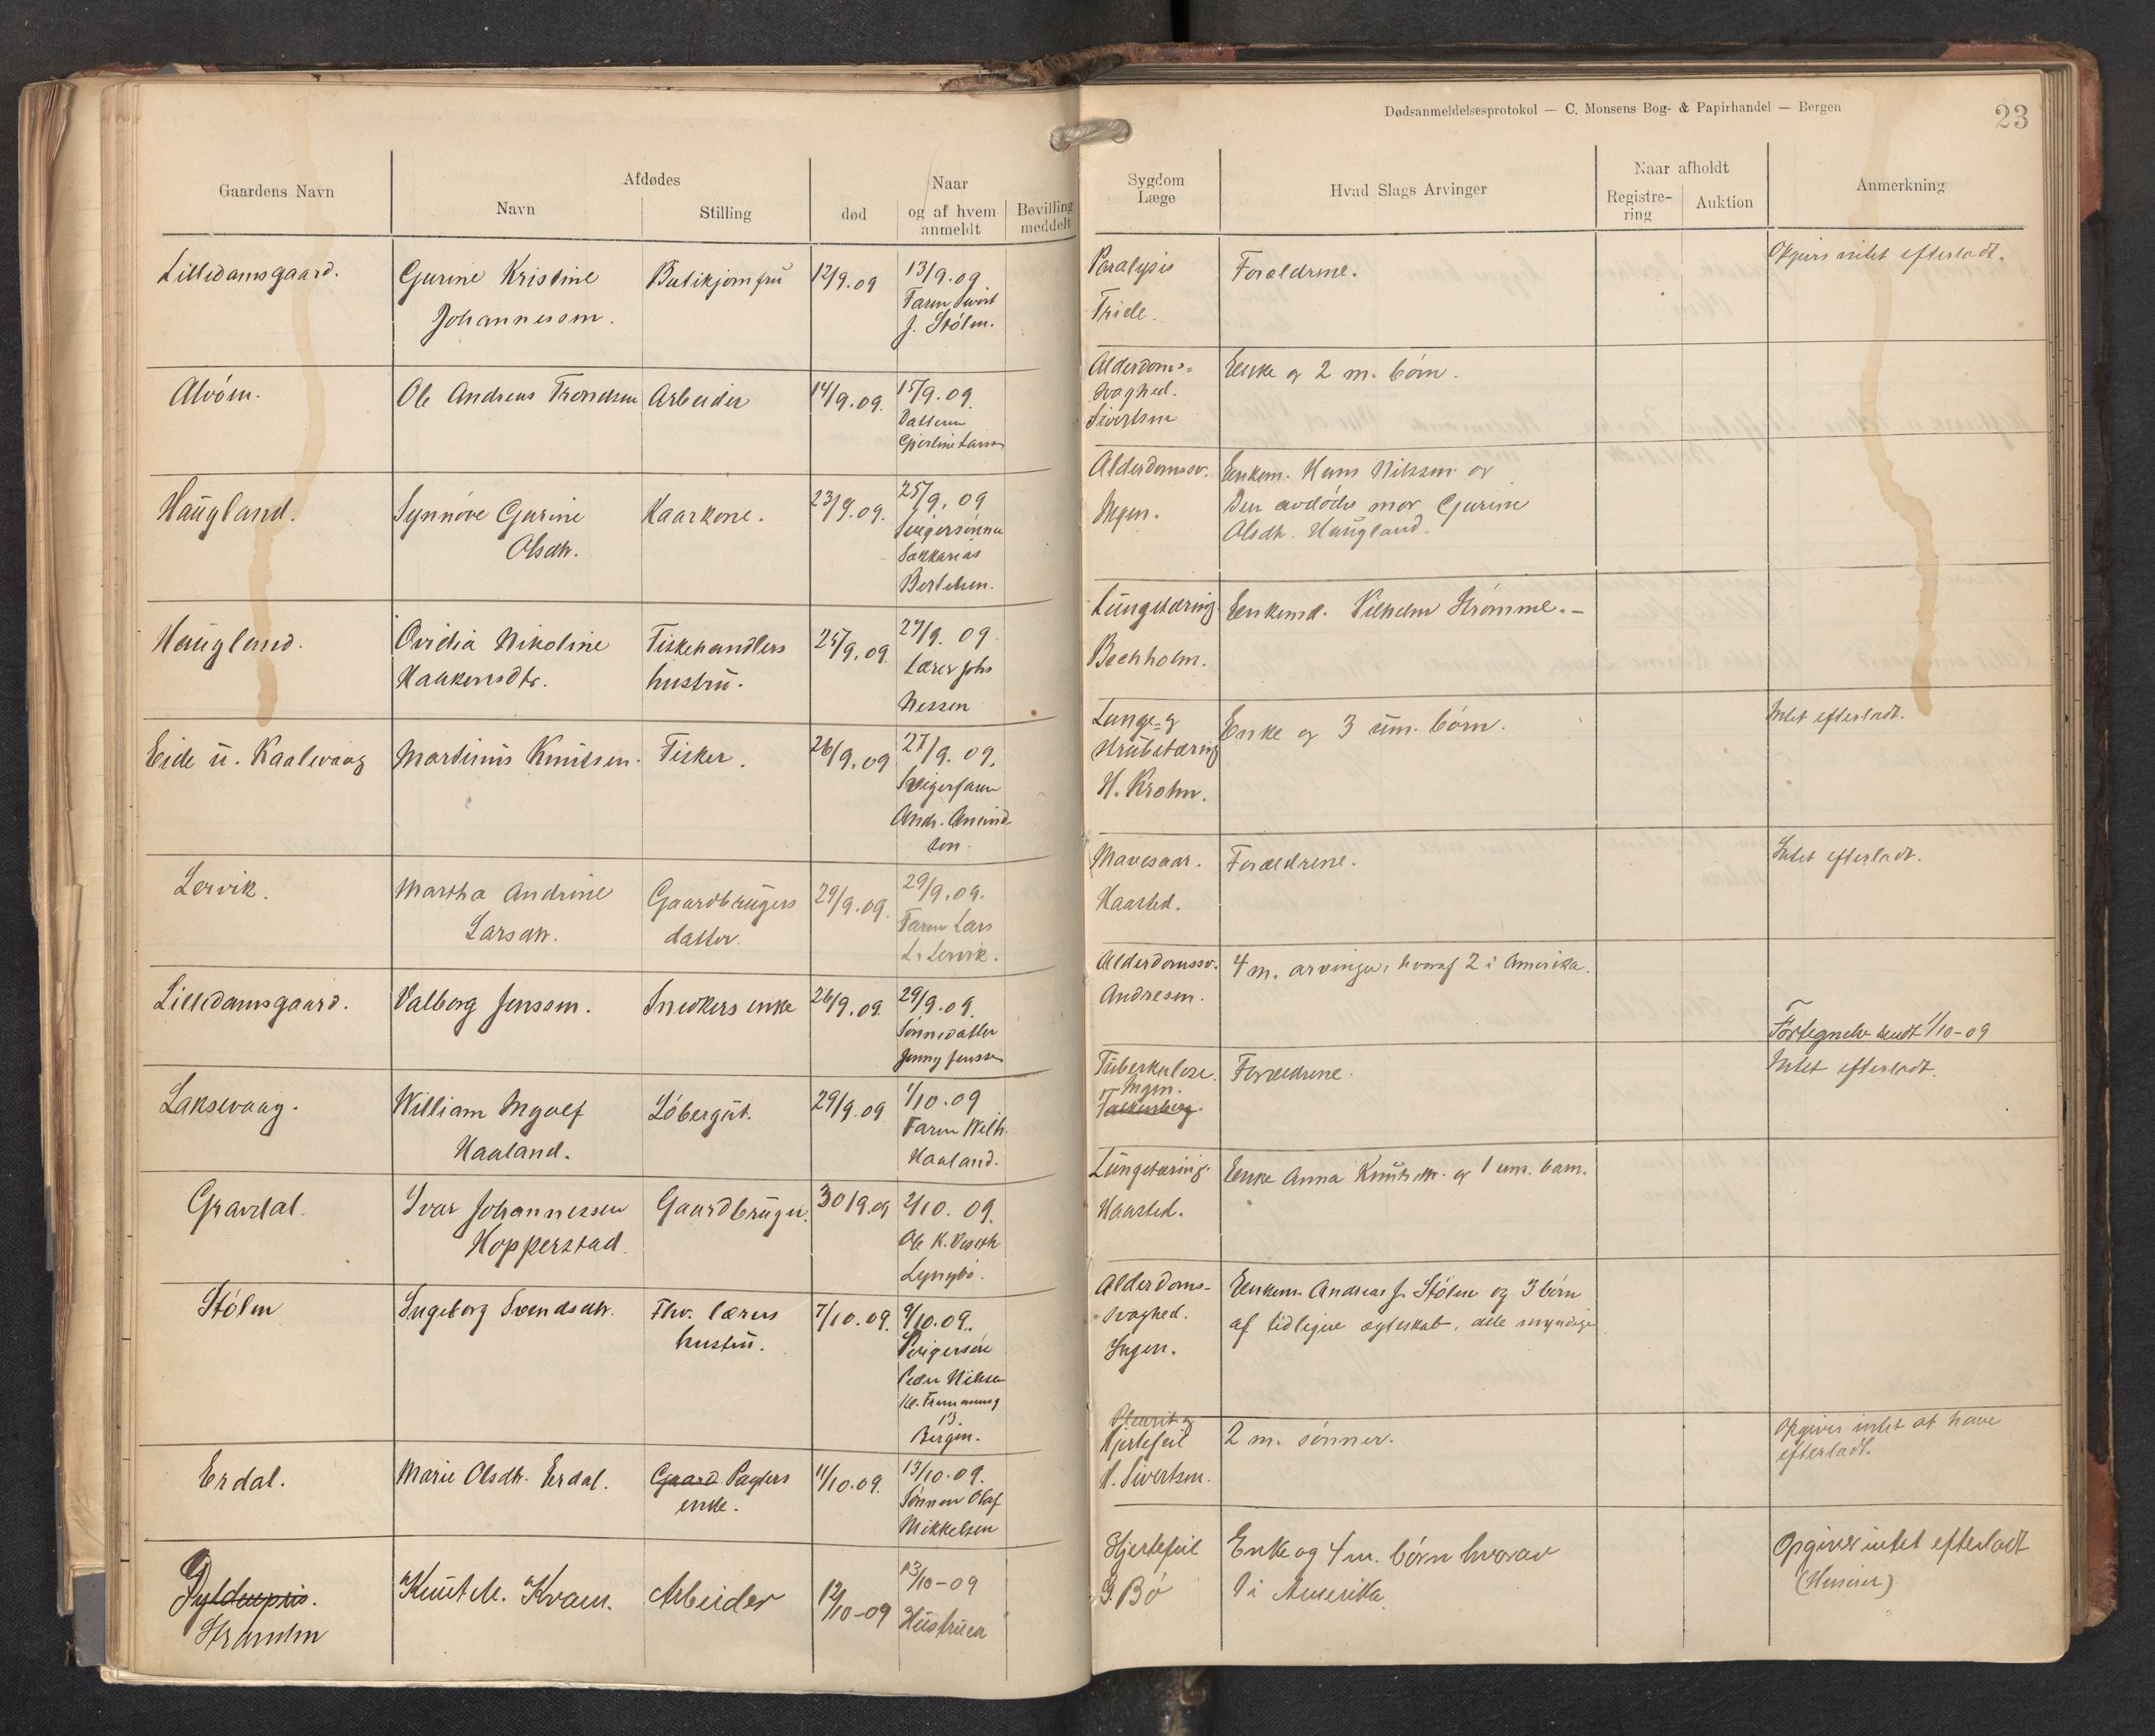 Dødsanmeldelsesprotokol — C. Monsens Bog- & Papirhandel — Bergen
23
Gaardens Navn
Afdødes
Navn
Stilling
død
Naar
og af hvem
anmeldt
Bevilling
meddelt
Sygdom
Læge
Hvad Slags Arvinger
Naar afholdt
Registre-
ring
Auktion
Anmerkning
Lilledamsgaard.
Gurine Kristine
Johannessen.
Butikjomfru
12/9.09
13/9.09
Faren
J. Stölen.
Paralysis
Forældrene.
intet efterladt.
Alvöen.
Ole Andreas Trondsen
Arbeider
14/9.09.
15/9.09.
Datteren
Larsen
Alderdoms-
svaghed.
Sivertsen
Enke og 2 m. börn.
Haugland.
Synnöve Gurine
Olsdtr.
Kaarkone.
23/9.09.
25/9.09
Svigersönnen
Sakkarias
Bertelsen.
Alderdomssv.
Ingen.
Enkem. Hans Nilssen og
Den avdödes mor Gurine
Olsdtr. Haugland.
Haugland.
Ovidia Nikoline
Haakensdtr.
Fiskehandlers
hustru.
25/9.09.
27/9.09.
Lærer Johs
Nessen
Lungetæring.
Bechholm.
Enkemd. Vilhelm Strömme.-
Eide u. Kaalevaag
Martinus Knutsen.
Fisker.
26/9.09
27/9.09.
Svigerfaren
Andr.
sen.
Lunge- og
Strubetæring
H. Krohn.
Enke og 3 um. börn.
Intet efterladt.
Lervik.
Martha Andrine
Larsdtr.
Gaardbrugers
datter.
29/9.09.
29/9.09.
Faren Lars
L. Lervik.
Mavesaar.
Haarsted.
Forældrene.
Intet efterladt.
Lilledamsgaard.
Valborg Jenssen.
Snedkers enke
26/9.09.
29/9.09.
Sönnedatter
Jenny Jenssen
Alderdomssv.
Andresen.
4 m. arvinger, hvoraf 2 i Amerika.
Fortegnelse sendt 1/10-09
Laksevaag.
William Ingolf
Haaland.
Löbergut.
29/9.09
1/10.09
Faren Wilh.
Haaland.
Tuberkulose.
Ingen.
Falkenberg.
Forældrene.
Intet efterladt.
Gravdal.
Ivar Johannessen
Hopperstad.
Gaardbruger.
30/9.09
2/10.09.
Ole K.
Lyngbö.
Lungetæring.
Haarsted.
Enke Anna Knutsdtr. og 1 um. barn.
Stölen
Ingeborg Svendsdtr.
Fhv. lærers
hustru.
7/10.09.
9/10.09.
Svigersön
Peder Nilsen
13.
Bergen.
Alderdoms-
svaghed.
Ingen.
Enkem. Andreas J. Stölen og 3 börn
af tidligere ægteskab, alle myndige
Erdal.
Marie Olsdtr. Erdal.
Gaard Pagters
enke.
11/10.09.
13/10.09.
Sönnen Olaf
Mikkelsen
Pleurit og
Hjertefeil
H. Sivertsen.
2 m. sönner.
Opgives intet at have
efterladt.
Gyldenpris.
Knut M. Kvam.
Arbeider
12/10-09
13/10-09
Hustruen
Hjertefeil
G. Bö
Enke og 4 m. börn hvorav
1 i Amerika.
Opgiver intet efterladt